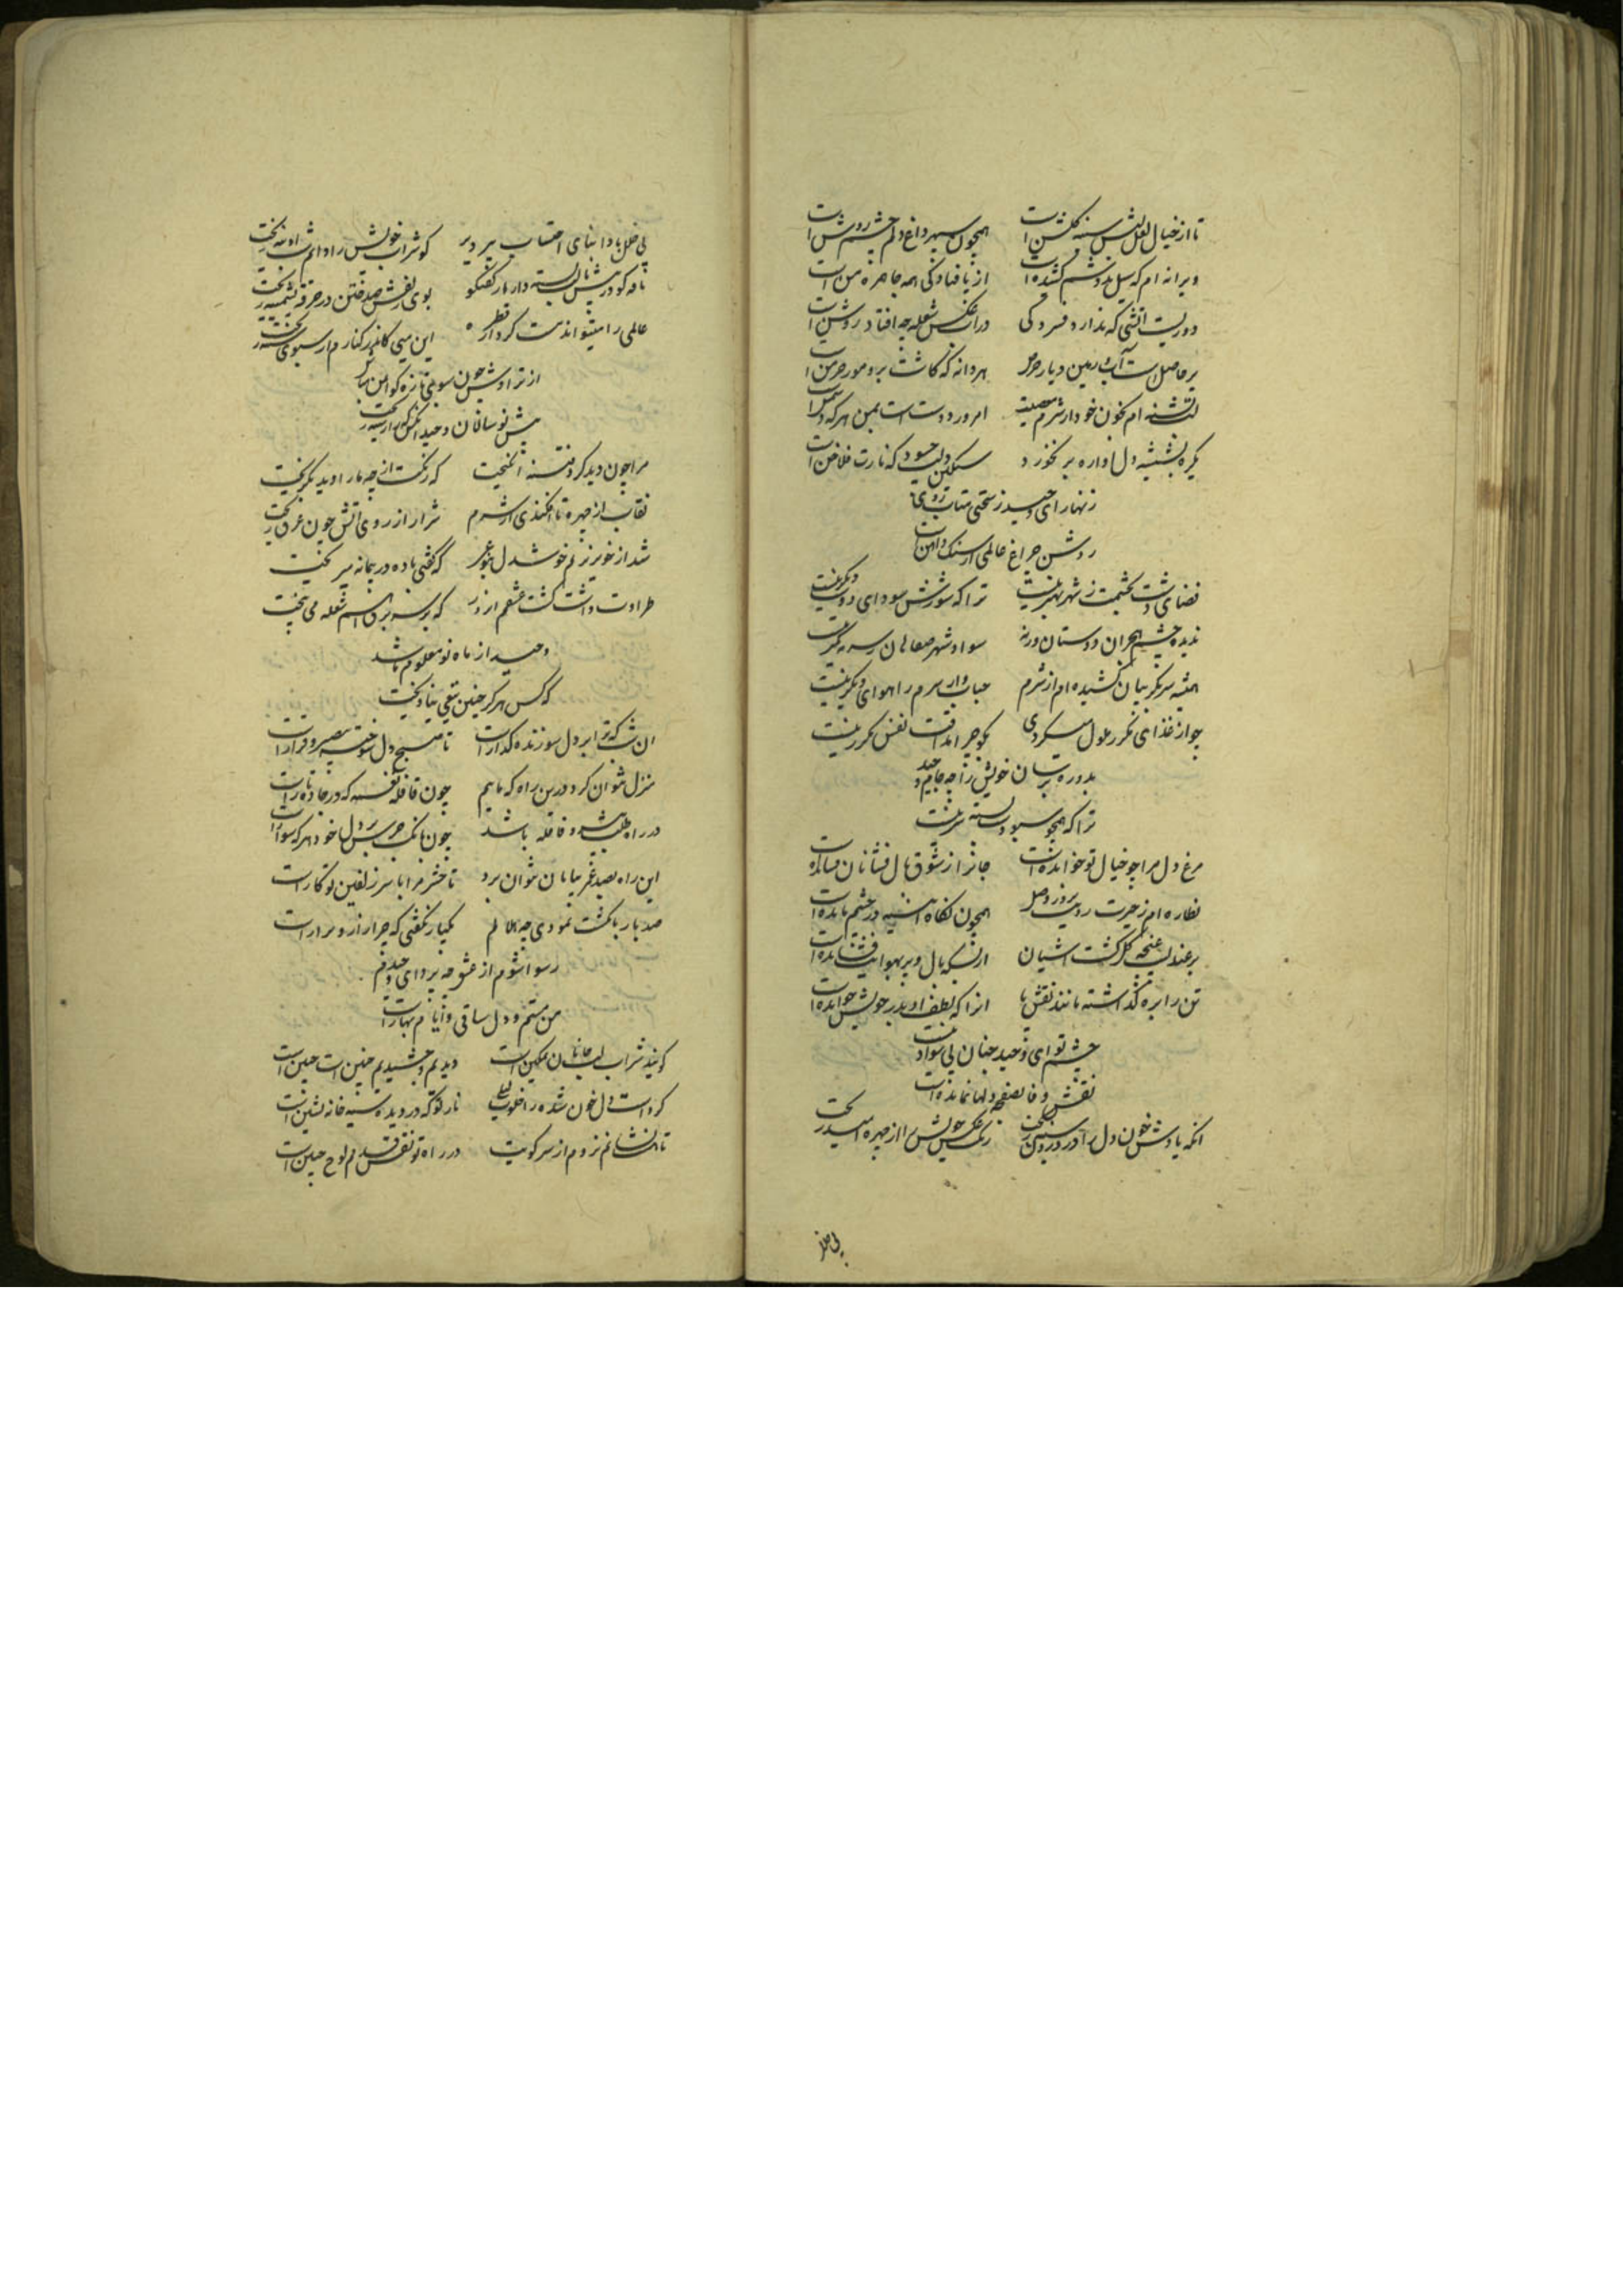 تا از خیال لعل لبش سینه گلشن است همچون سپهر داغ دلم چشم روشن است
ویرانه ام که سیل بدوشم کشیده است از پا فتادگی همه جا همره من است
دوریست آتشی که ندارد فسردگی در آب عکس شعله چه افتاد روشن است
بر حاصل است آب و زمین دیار حرص هر دانه که کاشت برو مور خرمن است
لب تشنه ام بخون خود از شرم معصیت امروز دوست است بمن هر که دشمن است
گیرد بشیشه دل و آواره برنخورد سنگین دلیست حسود که یارت فلاخن است
زنهار ای وحید ز سختی متاب روی
روشن چراغ عالمی از سنگ و آهن است
فضای دشت بچشمت ز شهر بهتر نیست ترا که شورش سودای دوست در سر نیست
ندیده چشم هجران دوستان ورنه سواد شهر صفاهان ز سرمه کمتر نیست
همیشه سر بگریبان کشیده ام از شرم حباب وار سرم را هوای دیگر نیست
چو از غذای مکرر ملول میگردی بگو چرا المت از نفس مکرر نیست
بدور مستان خویش را چه جا وحید
ترا که همچو سبو دست بسته بر سر نیست
مرغ دل مرا چو خیال تو خوانده است جانرا ز شوق بال فشانان رسانده است
نظاره ام ز حیرت رویت بروز وصل همچون نگاه آینه در چشم مانده است
بر عندلیب غنچه گل گشت آشیان از بسکه بال و پر بهوایت فشانده است
تن را بره گذاشته مانند نقش پا آنرا که لطف او بدر خویش خوانده است
چشم تو ای وحید چنان بی سواد نیست
نقش وفا بصفحه دلها نمانده است
آنکه یادش خون دل را در درون سینه ریخت رنگ عکس خویش را از چهره آیینه ریخت
بی خلل
بی خلل بادا بنای احتساب پیر دیر کو شراب خویش را در شب آدینه ریخت
نافه کو در پیش زلفش بسته دارد گفتگو بوی زلفش صد ختن در خرقه پشمینه ریخت
عالمی را میتواند مست کرد از قطره این می کاندر کنارم از سبوی سینه ریخت
از تراوش چون سبوی تازه کو ایمن مباش
پیش نوسالان وحید آنکس که راز سینه ریخت
مرا چون دید گردون فتنه انگیخت که رنگت از چه ما را دید بگریخت
نقاب از چهره تا افکندی از شرم شرار از روی آتش چون عرق ریخت
شد از خونریزیم خوشدل بنوعی که گفتی باده در پیمانه میریخت
طراوت داشت کشت عشقم از درد که بر سر برق اسم شعله می بیخت
وحید از ماه نو معلوم باشد
که کس هرگز چنین تیغی نیاویخت
آن شب که ترا بر دل سوزنده گذار است تا صبح دل سوخته بی صبر و قرار است
منزل نتوان کرد درین راه که ماییم چون قافله نفس که در جاده تار است
در راه طلب پیشرو قافله باشد چون بانگ جرس بر دل خود هر که سوار است
این راه بصد عمر بپایان نتوان برد تا حشر مرا با سر زلفین تو کار است
صد بار بانگشت نمودی چه هلالم یکبار نگفتی که چرا زار و نزار است
رسوا شوم از عشق چه پروای وحیدم
من مستم و دل ساقی و ایام بهار است
گویند شراب لب جانان نمکین است دیدیم و چشیدیم چنین است چنین است
کرد است دل خون شده را خلوت لیلی ناز تو که در دیده آیینه خانه نشین است
تا هست نشانم نروم از سر کویت در راه تو نقش قدمم لوح جبین است